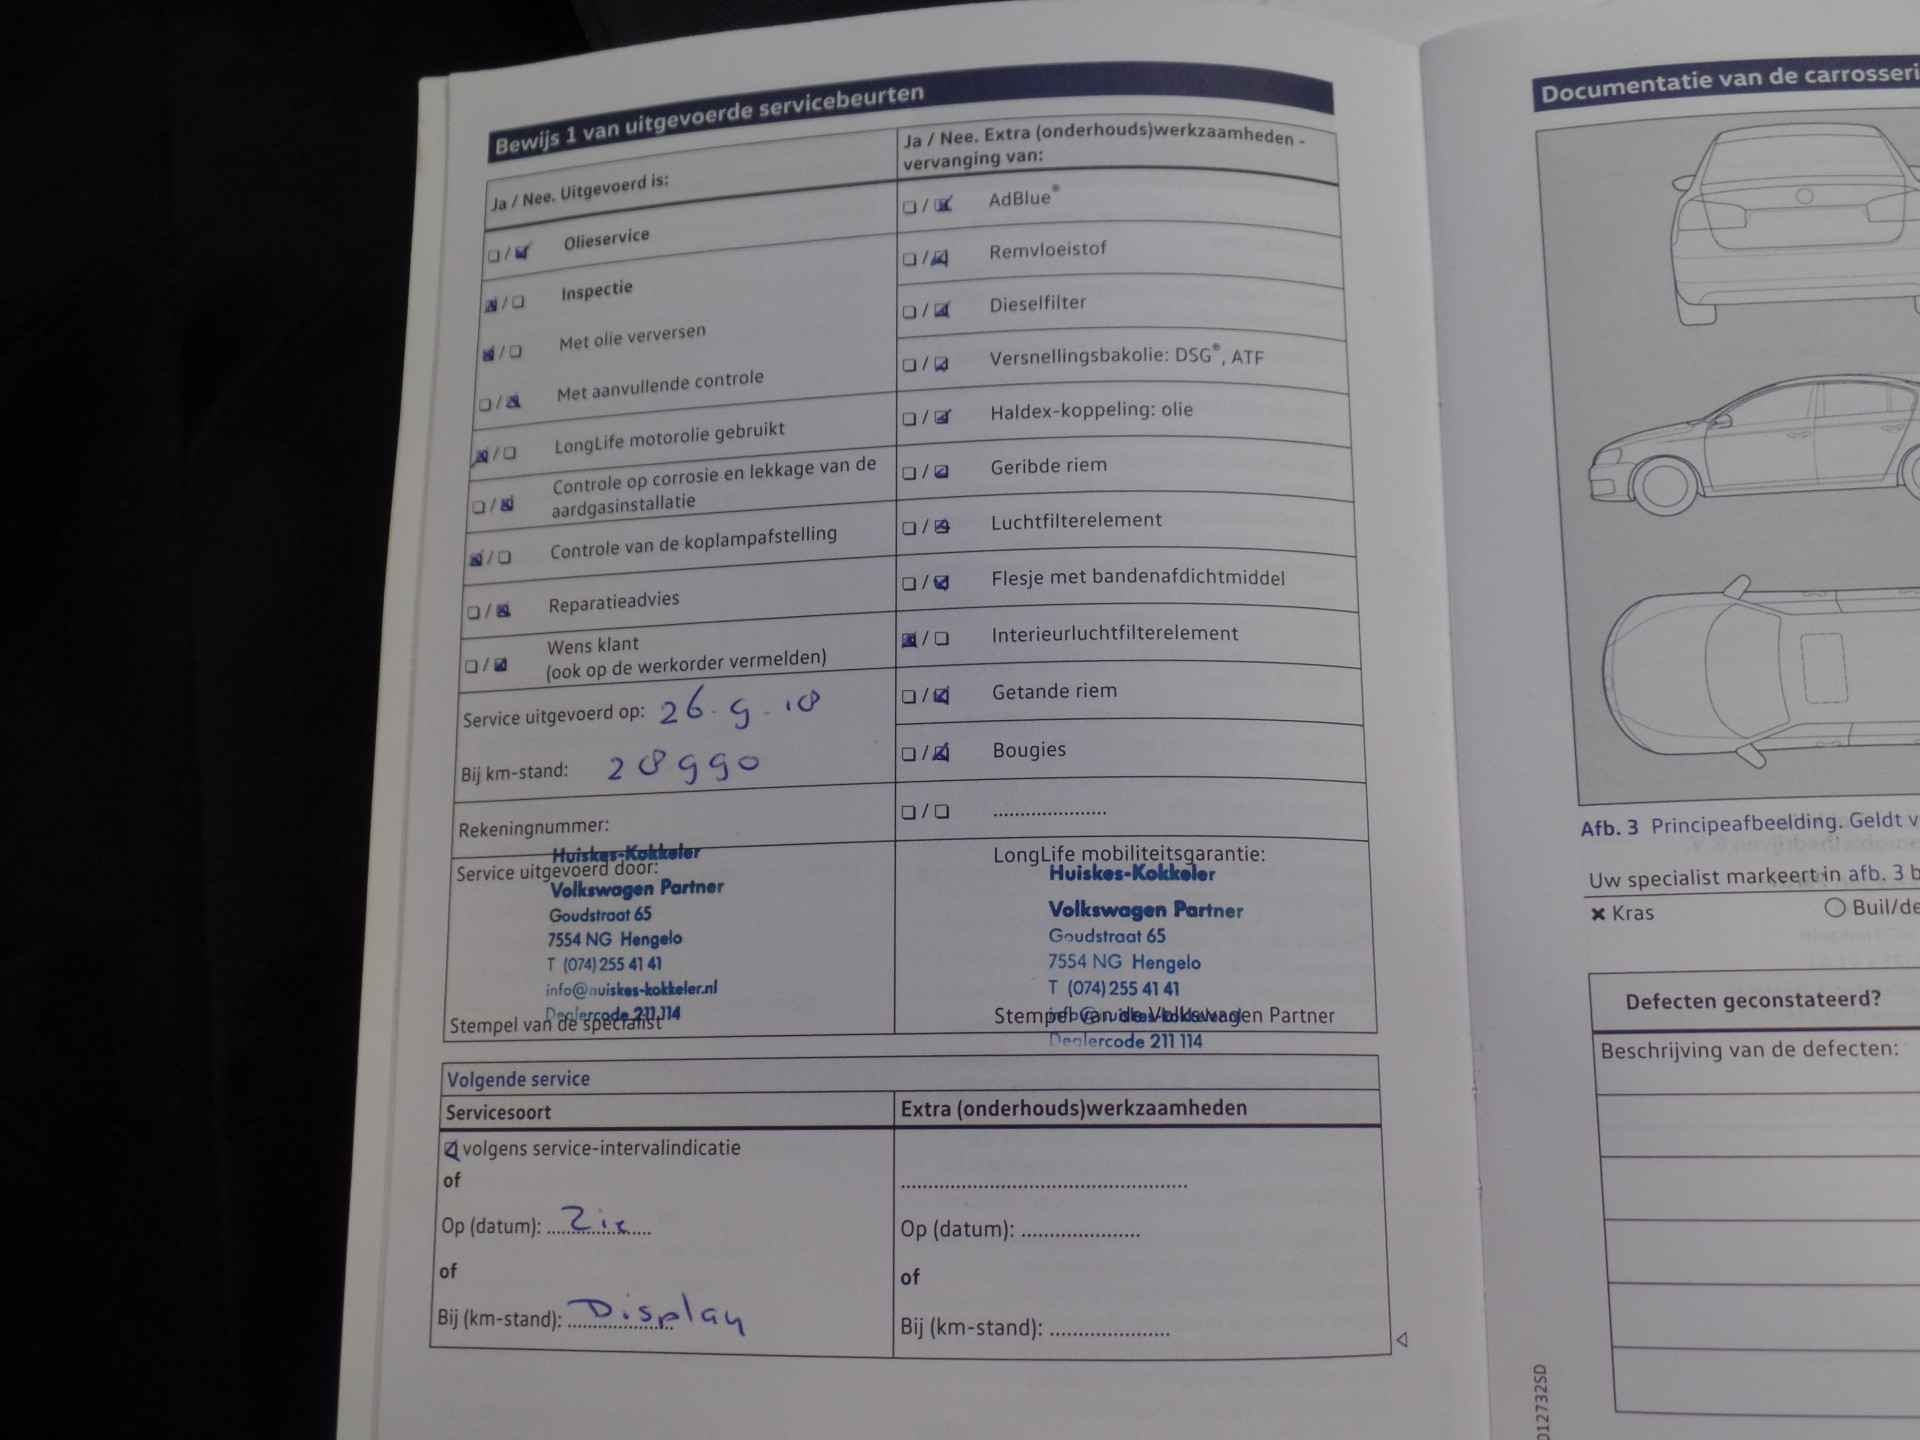 Bewijs 1 van uitgevoerde servicebeurten
Ja / Nee. Uitgevoerd is:
☐ / ☑ Olieservice
☑ / ☐ Inspectie
☑ / ☐ Met olie verversen
☐ / ☑ Met aanvullende controle
☑ / ☐ LongLife motorolie gebruikt
☐ / ☑ Controle op corrosie en lekkage van de
aardgasinstallatie
☑ / ☐ Controle van de koplampafstelling
☐ / ☑ Reparatieadvies
☐ / ☑ Wens klant
(ook op de werkorder vermelden)
Service uitgevoerd op: 26-9-18
Bij km-stand: 28990
Rekeningnummer:
Service uitgevoerd door:
Huiskes-Kokkeler
Volkswagen Partner
Goudstraat 65
7554 NG Hengelo
T (074) 255 41 41
info@huiskes-kokkeler.nl
Dealercode 211 114
Stempel van de specialist
Ja / Nee. Extra (onderhouds)werkzaamheden -
vervanging van:
☐ / ☑ AdBlue®
☐ / ☑ Remvloeistof
☐ / ☑ Dieselfilter
☐ / ☑ Versnellingsbakolie: DSG®, ATF
☐ / ☑ Haldex-koppeling: olie
☐ / ☑ Geribde riem
☐ / ☑ Luchtfilterelement
☐ / ☑ Flesje met bandenafdichtmiddel
☑ / ☐ Interieurluchtfilterelement
☐ / ☑ Getande riem
☐ / ☑ Bougies
☐ / ☐ ....................
LongLife mobiliteitsgarantie:
Huiskes-Kokkeler
Volkswagen Partner
Goudstraat 65
7554 NG Hengelo
T (074) 255 41 41
info@huiskes-kokkeler.nl
Stempel van de Volkswagen Partner
Dealercode 211 114
Volgende service
Servicesoort
☑ volgens service-intervalindicatie
of
Op (datum): Zie
of
Bij (km-stand): Display
Extra (onderhouds)werkzaamheden
..................................................
Op (datum): .....................
of
Bij (km-stand): .....................
Documentatie van de carrosseri
Afb. 3 Principeafbeelding. Geldt v
Uw specialist markeert in afb. 3 b
× Kras ○ Buil/de
Defecten geconstateerd?
Beschrijving van de defecten:
012732SD